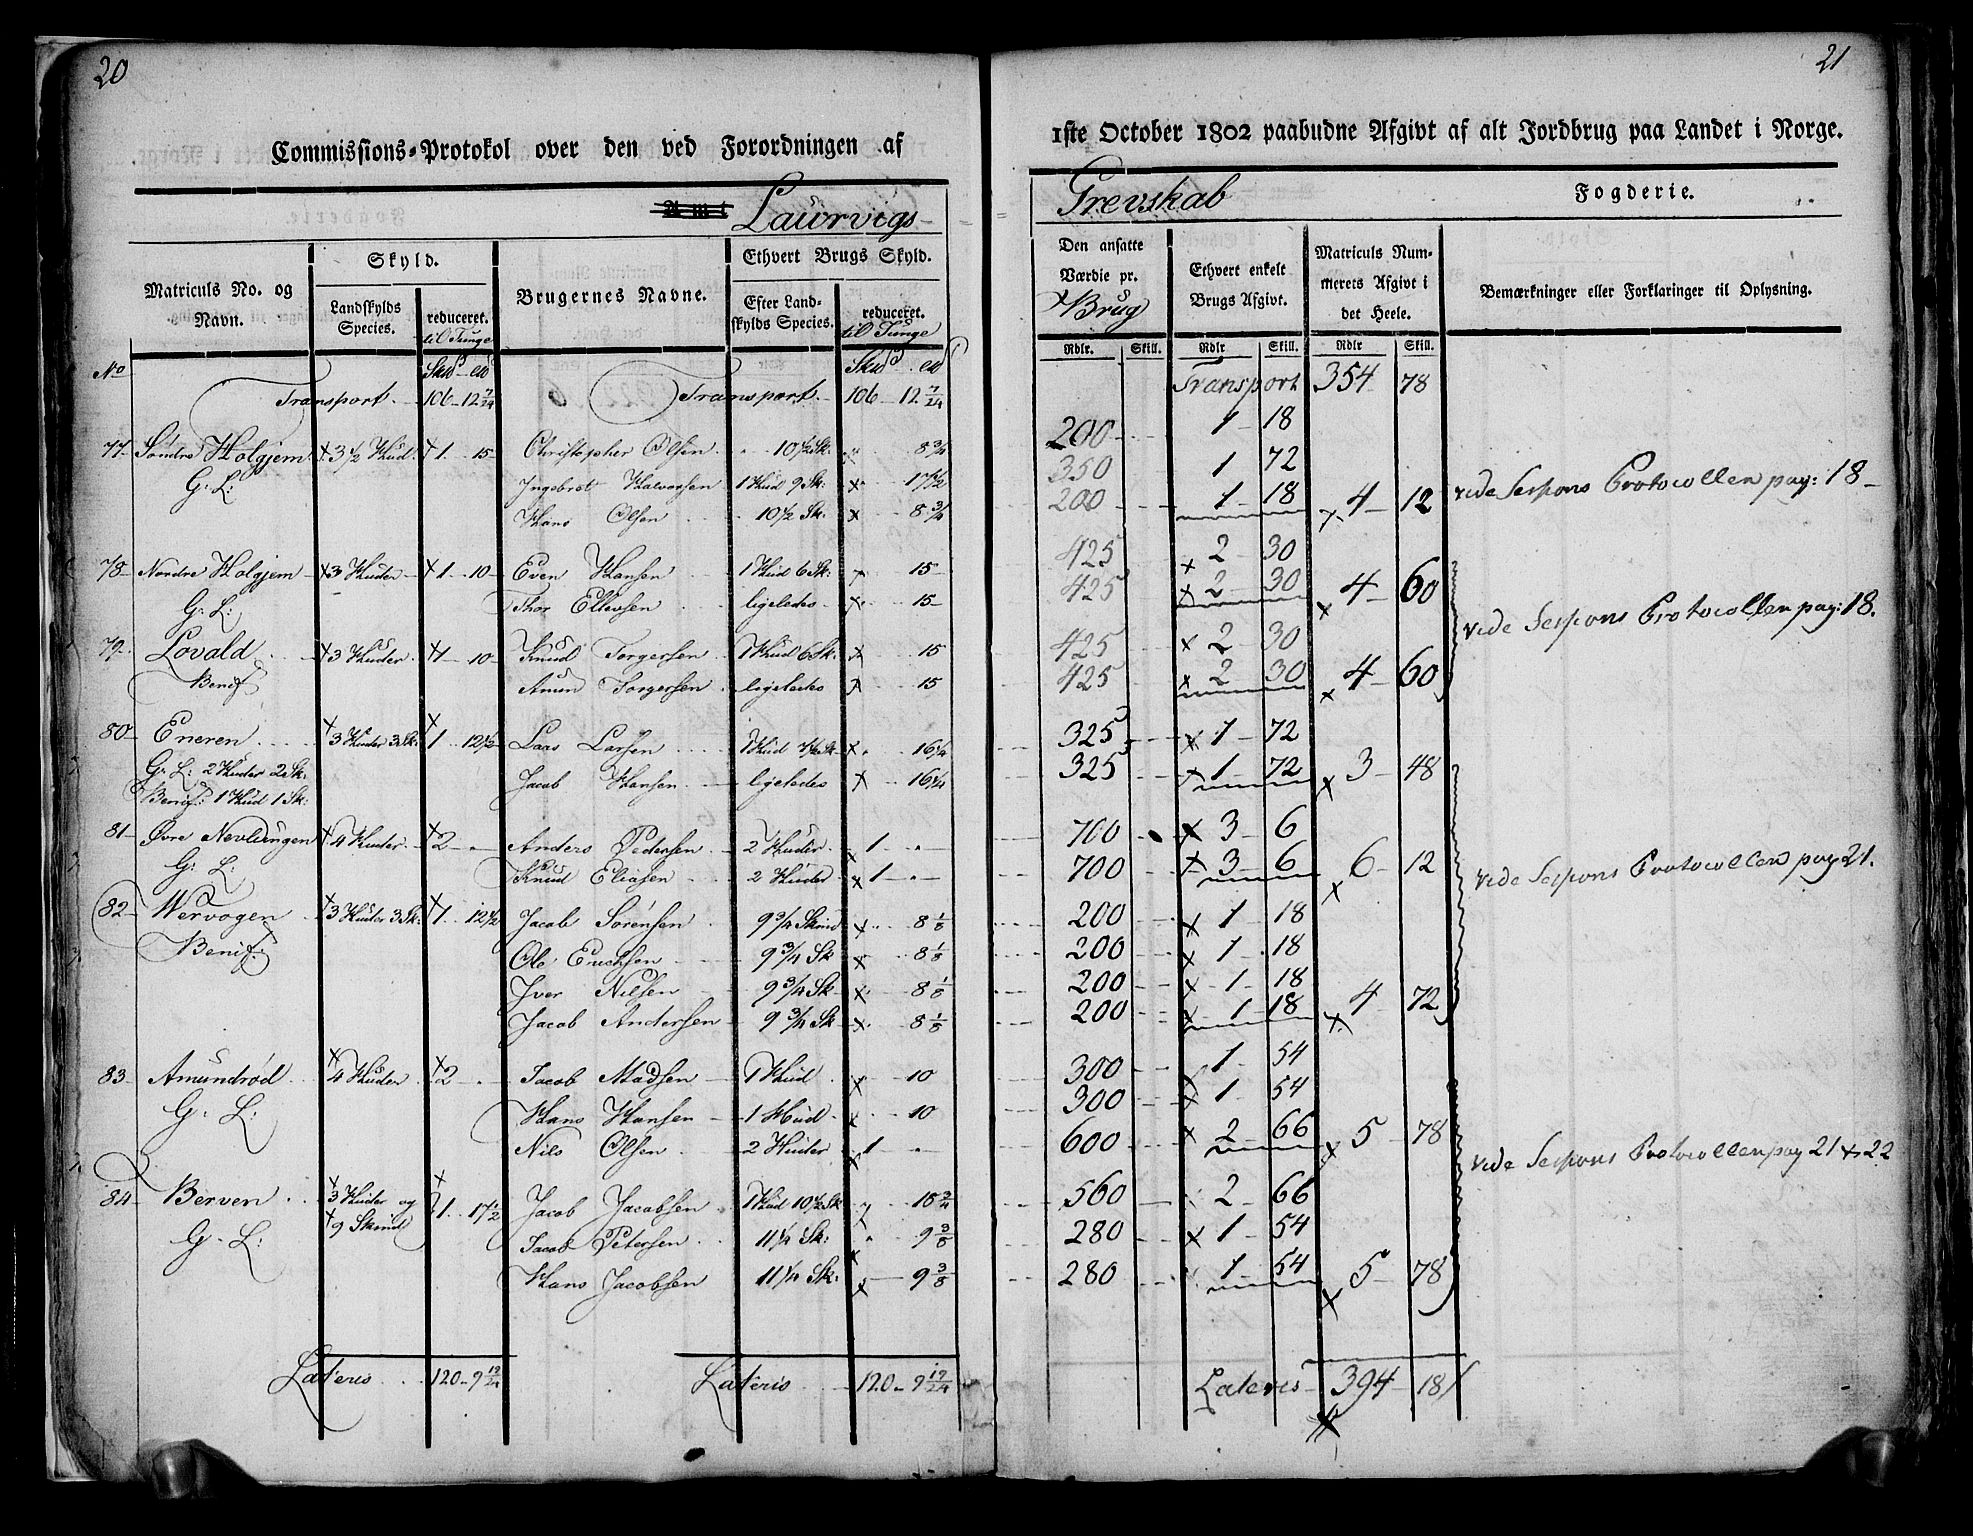 20
Commissions-Protokol over den ved Forordningen af
Amt Laurvigs
Matriculs No. og Navn.
Skyld.
Landskylds Species.
reduceret. til Tunge
Brugernes Navne.
Ethvert Brugs Skyld.
Efter Landskylds Species.
reduceret. til Tunge
No Skud ... Skud
Transport 106 - 12 7/24 Transport 106 - 12 7/24
77 Søndre Holgjem 3 1/2 Hud 1 15 Christopher Olsen 10 1/2 Sk: 8 3/4
G: L: Ingebret Halvorsen 1 Hud 9 Sk: 17 1/2
Hans Olsen 10 1/2 Sk: 8 3/4
78 Nordre Holgjem 3 Huder 1 10 Even Hansen 1 Hud 6 Sk: 15
G: L: Thor Ellevsen ligeledes 15
79 Lovald 3 Huder 1 10 Knud Torgersen 1 Hud 6 Sk: 15
Benif: Amun Torgersen ligeledes 15
80 Eneren 3 Huder 3 Sk: 1 12 1/2 Lars Larsen 1 Hud 7 1/2 Sk 16 1/4
G: L: 2 Huder 2 Sk: Jacob Hansen ligeledes 16 1/4
Benif: 1 Hud 1 Sk:
81 Øvre Nevlungen 4 Huder 2 - Anders Pedersen 2 Huder 1 -
G: L: Knud Eliasen 2 Huder 1 -
82 Wervogen 3 Huder 3 Sk: 1 12 1/2 Jacob Sørensen 9 3/4 Skind 8 1/8
Benif: Ole Erichsen 9 3/4 Sk 8 1/8
Iver Nilsen 9 3/4 Sk 8 1/8
Jacob Andersen 9 3/4 Sk 8 1/8
83 Amundrød 4 Huder 2 - Jacob Madsen 1 Hud 10
G: L: Hans Hansen 1 Hud 10
Nils Olsen 2 Huder 1 -
84 Berven 3 Huder og 9 Skind 1 17 1/2 Jacob Jacobsen 1 Hud 10 1/2 Sk 18 3/4
G: L: Jacob Petersen 11 1/4 Sk: 9 3/8
Hans Jacobsen 11 1/4 Sk: 9 3/8
Lateris 120 - 9 19/24 Lateris 120 - 9 19/24
21
1ste October 1802 paabudne Afgivt af alt Jordbrug paa Landet i Norge.
Grevskab Fogderie.
Den ansatte Værdie pr. Brug
Ethvert enkelt Brugs Afgivt.
Matriculs Nummerets Afgivt i det Heele.
Bemærkninger eller Forklaringer til Oplysning.
Rdlr. Skill. Rdlr Skill. Rdlr Skill.
Transport 354 78
200 1 18
350 1 72
200 1 18 4 12 vide Sespons Protocollen pag: 18
425 2 30
425 2 30 4 60
vide Sespons Protocollen pag: 18.
425 2 30
425 2 30 4 60
325 1 72
325 1 72 3 48
700 3 6
700 3 6 6 12 vide Sespons Protocollen pag 21.
200 1 18
200 1 18
200 1 18
200 1 18 4 72
300 1 54
300 1 54
600 2 66 5 78 vide Sespons Protocollen pag 21 & 22
560 2 66
280 1 54
280 1 54 5 78
Lateris 394 18